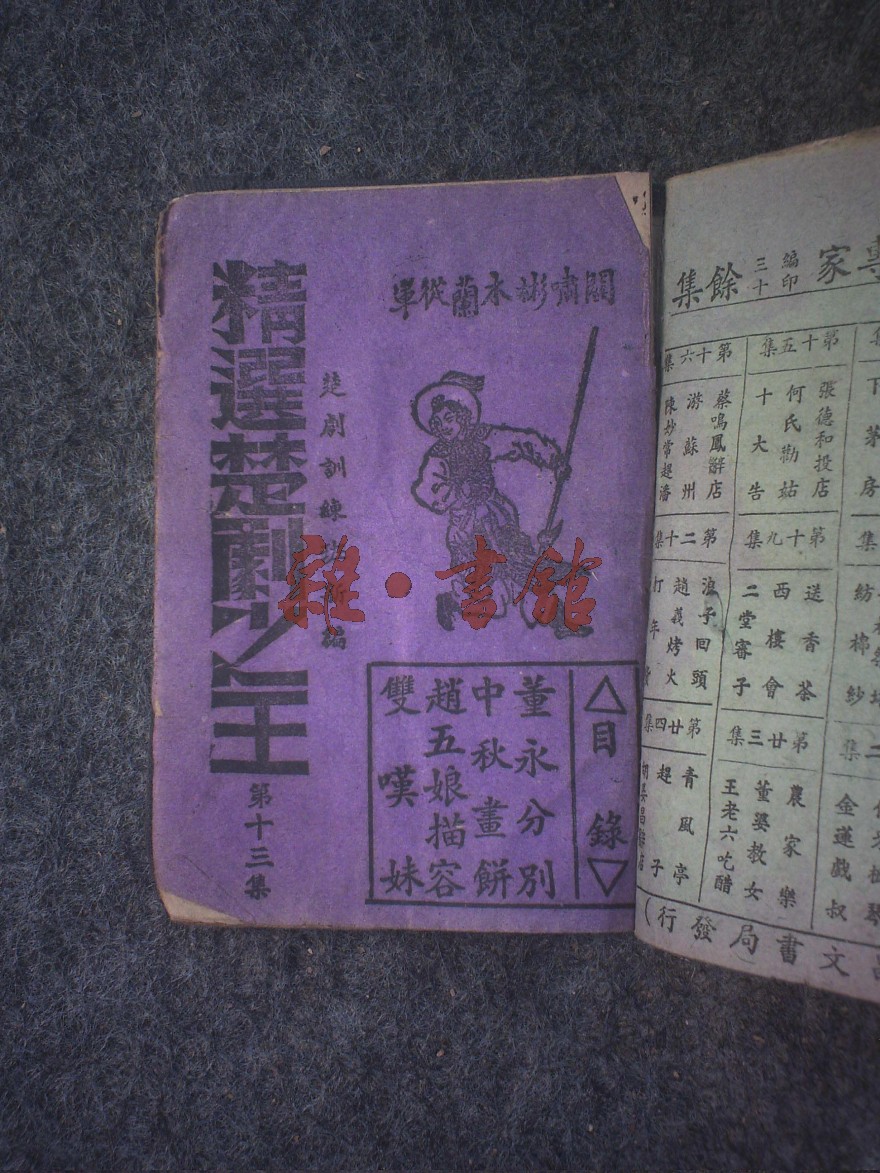 關嘯彬木蘭從軍
楚劇訓練班新編
精選楚劇之王
第十三集
△目錄▽
董永分別
中秋畫餅
趙五娘描容
雙嘆妹
雜·書館
家
編印
三十
餘集
第十五集
張德和投店
何氏勸姑
十大告
第十六集
蔡鳴鳳辭店
游蘇州
陳妙常趕潘
第十九集
送香茶
西樓會
二堂審子
第二十集
浪子回頭
趙義烤火
打年
第廿三集
農家樂
董婆教女
王老六吃醋
第廿四集
青風亭
趕子
下茅房
紡棉紗
金蓮戲叔
文書局發行